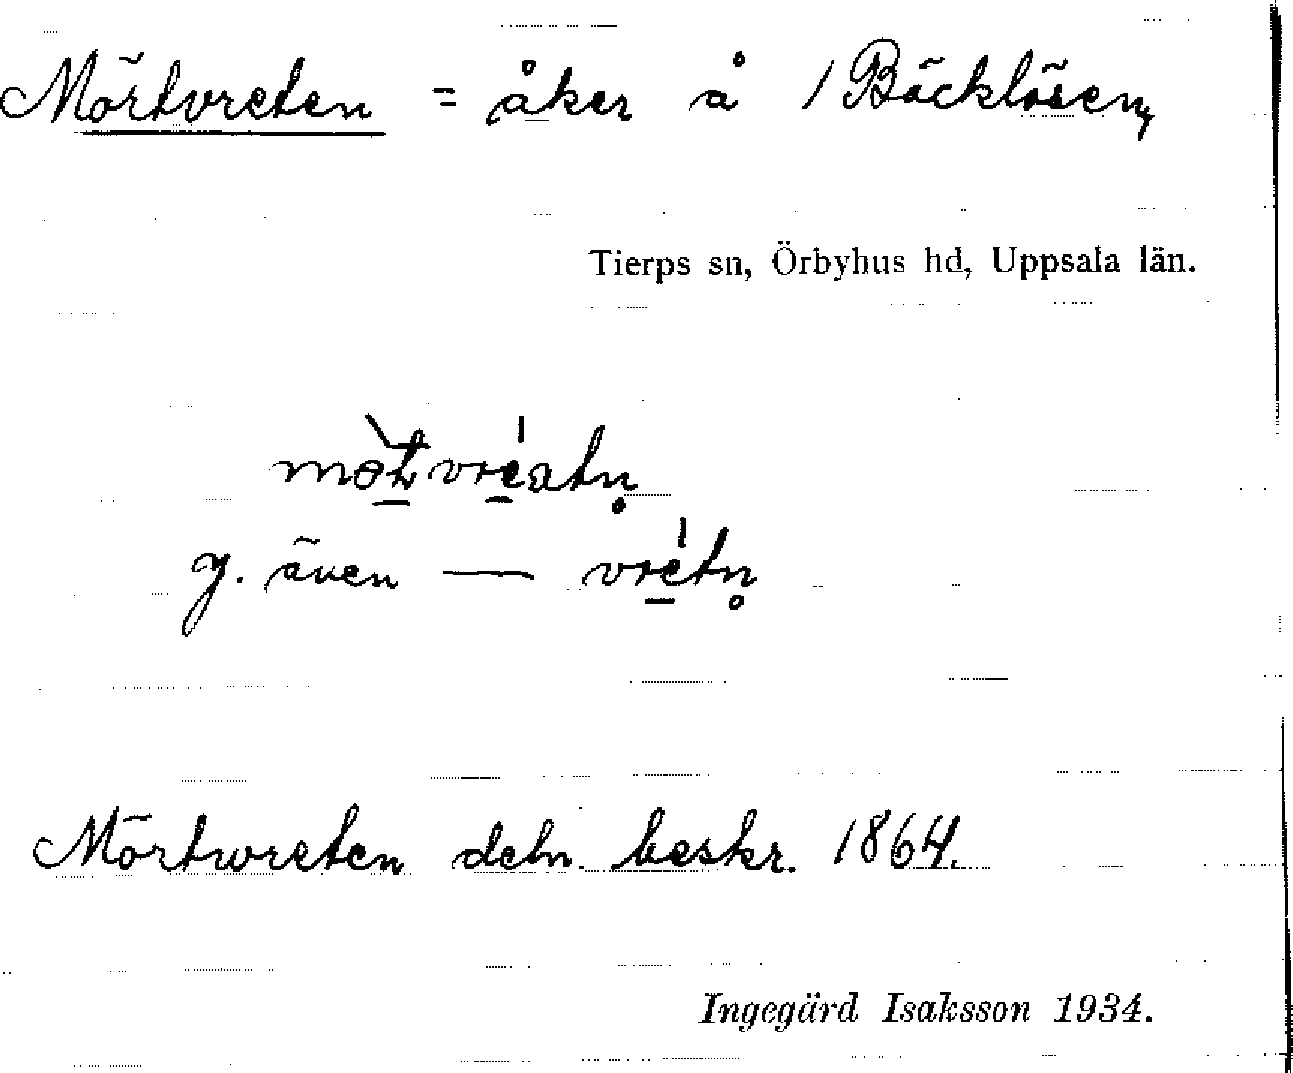 Mörtvreten = åker å 1 Bäcklösen,
Tierps sn, Örbyhus hd, Uppsala län.
y. även — vrétn̥
Mörtwreten deln. beskr. 1864.
Ingegärd Isaksson 1934.